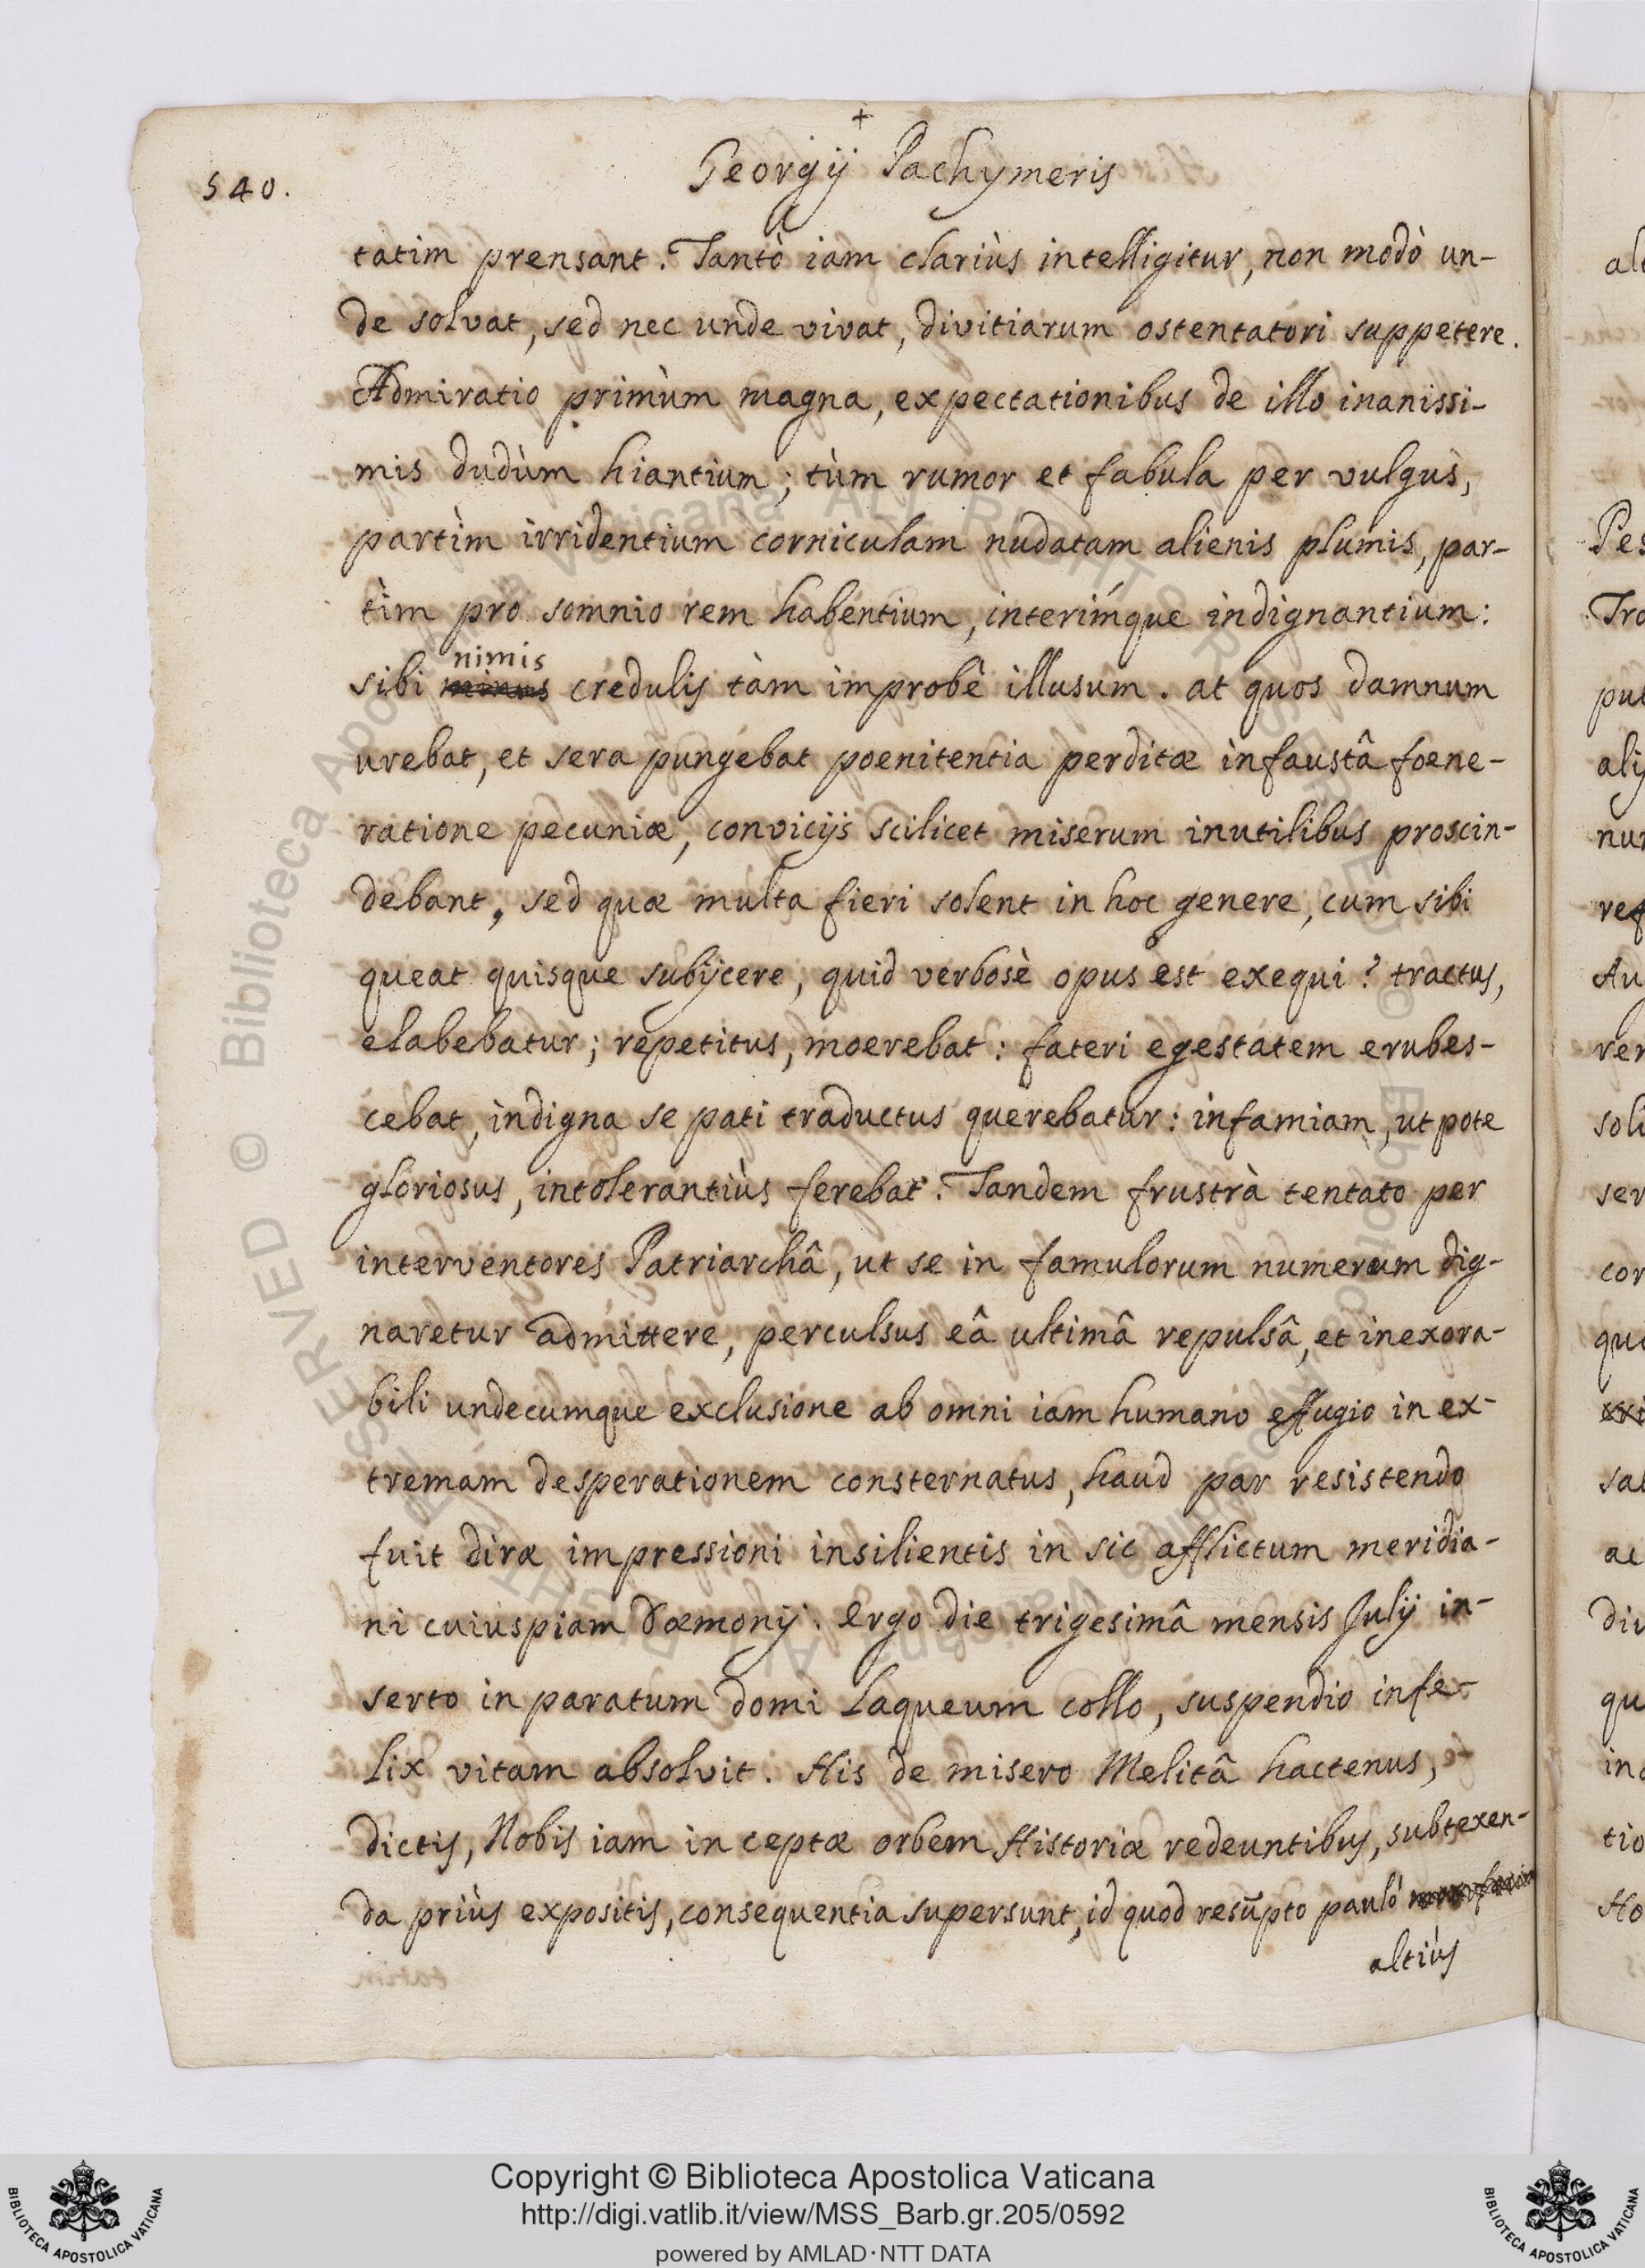 +
540.
Georgij Pachymeris
tatim prensant. Tantò iam clariùs intelligitur, non modò un-
de solvat, sed nec unde vivat, divitiarum ostentatori suppetere.
Admiratio primùm magna, expectationibus de illo inanissi-
mis dudùm hiantium; tùm rumor et fabula per vulgus,
partìm irridentium corniculam nudatam alienis plumis, par-
tìm pro somnio rem habentium, interímque indignantium:
nimis
sibi minus credulis tàm improbè illusum. at quos damnum
urebat, et sera pungebat poenitentia perditæ infaustâ foene-
ratione pecuniæ, convicijs scilicet miserum inutilibus proscin-
debant, sed quæ multa fieri solent in hoc genere, cum sibi
queat quisque subijcere, quid verbosè opus est exequi? tractus,
elabebatur; repetitus, moerebat: fateri egestatem erubes-
cebat, indigna se pati traductus querebatur: infamiam, ut pote
gloriosus, intolerantiùs ferebat. Tandem frustrà tentato per
interventores Patriarchâ, ut se in famulorum numerum dig-
naretur admittere, perculsus eâ ultimâ repulsâ, et inexora-
bili undecumque exclusione ab omni iam humano effugio in ex-
tremam desperationem consternatus, haud par resistendo
fuit diræ impressioni insilientis in sic afflictum meridia-
ni cuiuspiam dæmonij. Ergo die trigesimâ mensis Julij in-
serto in paratum domi laqueum collo, suspendio infe-
lix vitam absolvit. His de misero Melitâ hactenus,
dictis, Nobis iam in ceptæ orbem Historiæ redeuntibus, subtexen-
da priùs expositis, consequentia supersunt, id quod resũpto pauló
altiùs
Copyright © Biblioteca Apostolica Vaticana
http://digi.vatlib.it/view/MSS_Barb.gr.205/0592
powered by AMLAD·NTT DATA
BIBLIOTECA APOSTOLICA VATICANA
BIBLIOTECA APOSTOLICA VATICANA